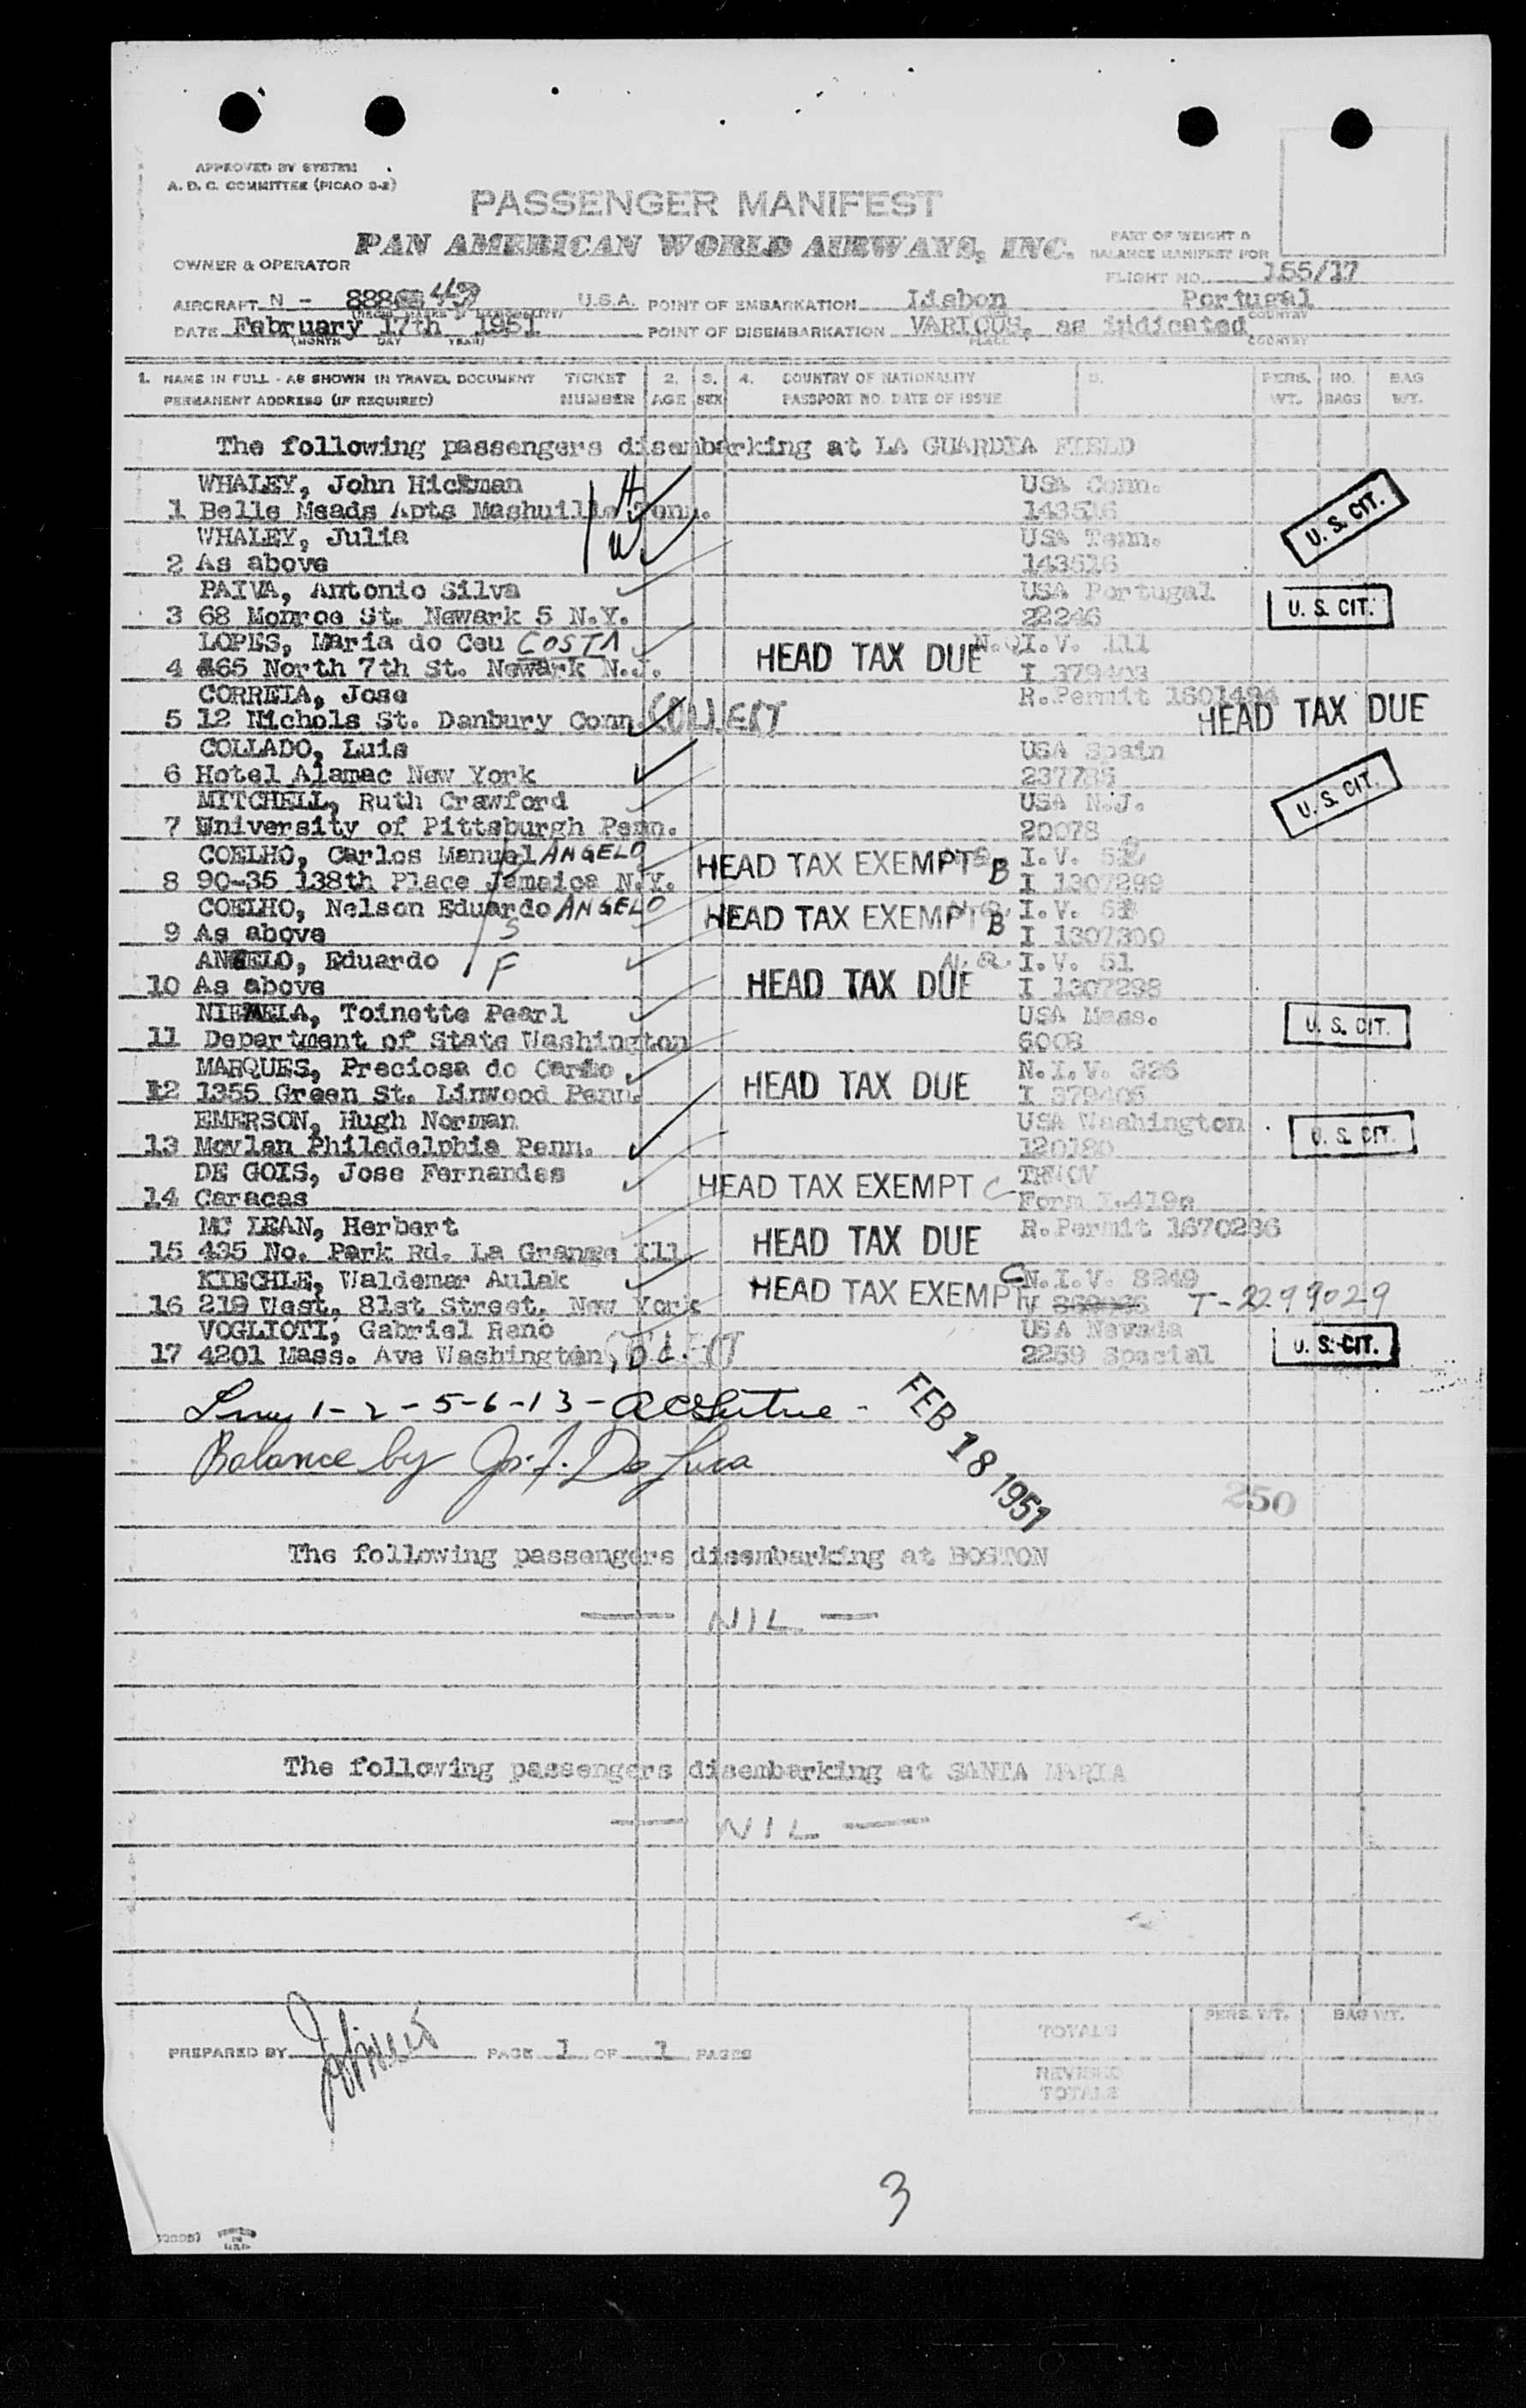 APPROVED BY SYSTEM
A. D. C. COMMITTEE (PICAO 3-2)
PASSENGER MANIFEST
PAN AMERICAN WORLD AIRWAYS, INC.
PART OF WEIGHT &
BALANCE MANIFEST FOR
OWNER & OPERATOR
FLIGHT NO. 155/17
AIRCRAFT N - 888 49 U.S.A. POINT OF EMBARKATION Lisbon Portugal
COUNTRY
DATE February 17th 1951 POINT OF DISEMBARKATION VARIOUS, as indicated
(MONTH DAY YEAR) PLACE COUNTRY
1. NAME IN FULL - AS SHOWN IN TRAVEL DOCUMENT TICKET 2. 3. 4. COUNTRY OF NATIONALITY 5. PERS. NO. BAG
PERMANENT ADDRESS (IF REQUIRED) NUMBER AGE SEX PASSPORT NO. DATE OF ISSUE WT. BAGS WT.
The following passengers disembarking at LA GUARDIA FIELD
WHALEY, John Hickman H USA Conn.
1 Belle Meads Apts Mashuille Tenn. 143516 U. S. CIT.
WHALEY, Julia W USA Tenn.
2 As above 143516
PAIVA, Antonio Silva USA Portugal
3 68 Monroe St. Newark 5 N.Y. 22246 U. S. CIT.
LOPES, Maria do Ceu COSTA N.Q I.V. 111
4 465 North 7th St. Newark N.J. HEAD TAX DUE I 379403
CORREIA, Jose R.Permit 1601494
5 12 Nichols St. Danbury Conn. COLLECT HEAD TAX DUE
COLLADO, Luis USA Spain
6 Hotel Alamac New York 237785
MITCHELL, Ruth Crawford USA N.J.
7 University of Pittsburgh Penn. 20078 U. S. CIT.
COELHO, Carlos Manuel ANGELO I.V. 52
8 90-35 138th Place Jamaica N.Y. HEAD TAX EXEMPT B I 1307299
COELHO, Nelson Eduardo ANGELO I.V. 53
9 As above S HEAD TAX EXEMPT B I 1307300
ANGELO, Eduardo F N.Q. I.V. 51
10 As above HEAD TAX DUE I 1307298
NIEMELA, Toinette Pearl USA Mass.
11 Department of State Washington 6008 U. S. CIT.
MARQUES, Preciosa do Carmo N.I.V. 326
12 1355 Green St. Linwood Penn. HEAD TAX DUE I 379405
EMERSON, Hugh Norman USA Washington
13 Moylan Philadelphia Penn. 120180 U. S. CIT.
DE GOIS, Jose Fernandes TRWOV
14 Caracas HEAD TAX EXEMPT C Form I.419a
MC LEAN, Herbert R.Permit 1670236
15 435 No. Park Rd. La Grange Ill. HEAD TAX DUE
KIECHLE, Waldemar Aulak C N.I.V. 8249
16 219 West. 81st Street. New York HEAD TAX EXEMPT V T-2299029
VOGLIOTI, Gabriel Reno USA Nevada
17 4201 Mass. Ave Washington, D.C. 2259 Special U. S. CIT.
1-2-5-6-13-
Balance by Jos. F. De Luca
FEB 18 1951
250
The following passengers disembarking at BOSTON
— NIL —
The following passengers disembarking at SANTA MARIA
— NIL —
PREPARED BY PAGE 1 OF 1 PAGES
TOTALS PERS. WT. BAG WT.
REVISED
TOTALS
3